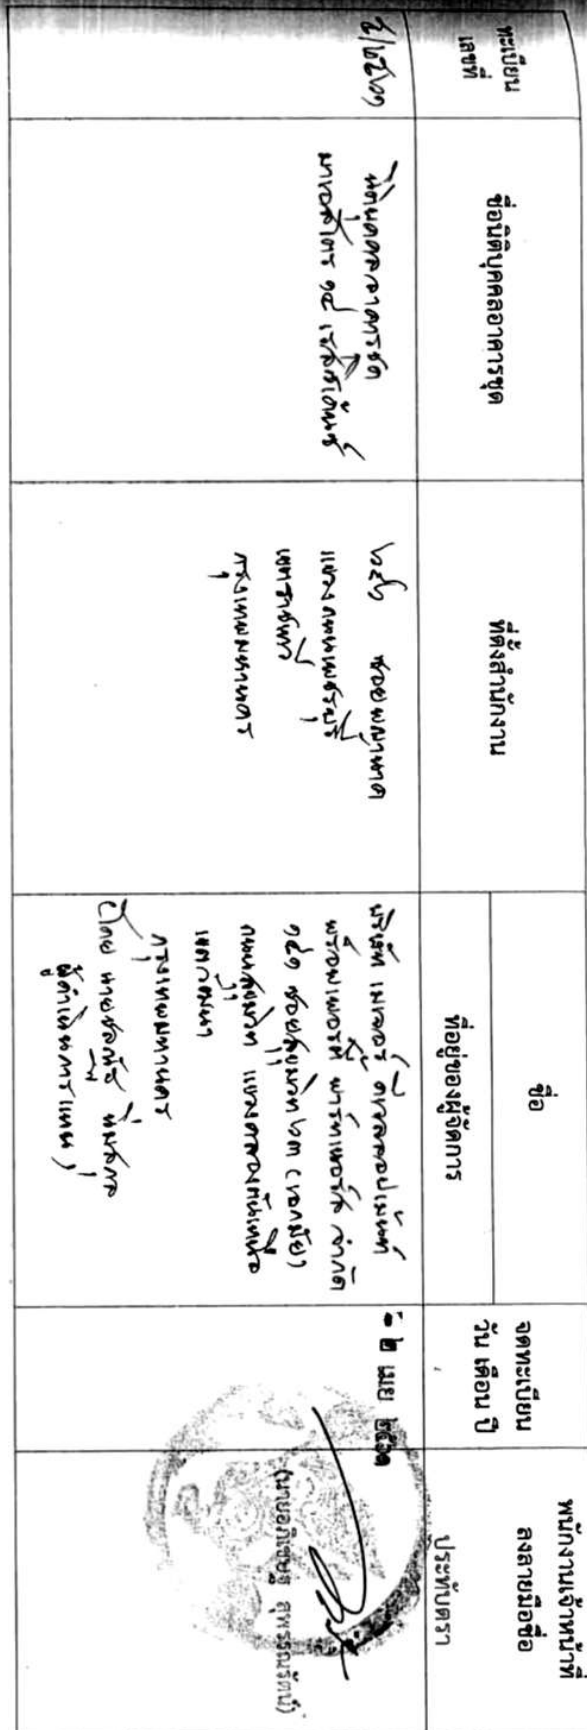 ทะเบียน
เลขที่
ชื่อนิติบุคคลอาคารชุด
ที่ตั้งสำนักงาน
ชื่อ
ที่อยู่ของผู้จัดการ
จดทะเบียน
วัน เดือน ปี
พนักงานเจ้าหน้าที่
ลงลายมือชื่อ
ประทับตรา
นิติบุคคลอาคารชุด
มาเอสโตร ๑๔ เรสซิเด้นซ์
ซอยพญานาค
แขวงถนนเพชรบุรี
เขตราชเทวี
กรุงเทพมหานคร
บริษัท เมเจอร์ ดีเวลลอปเม้นท์
พร็อพเพอร์ตี้ พาร์ทเนอร์ส จำกัด
ซอยสุขุมวิท ๖๓ (เอกมัย)
ถนนสุขุมวิท แขวงคลองตันเหนือ
เขตวัฒนา
กรุงเทพมหานคร
(โดย นาย
ผู้ดำเนินการแทน)
- ๒ เมย ๒๕๖๑